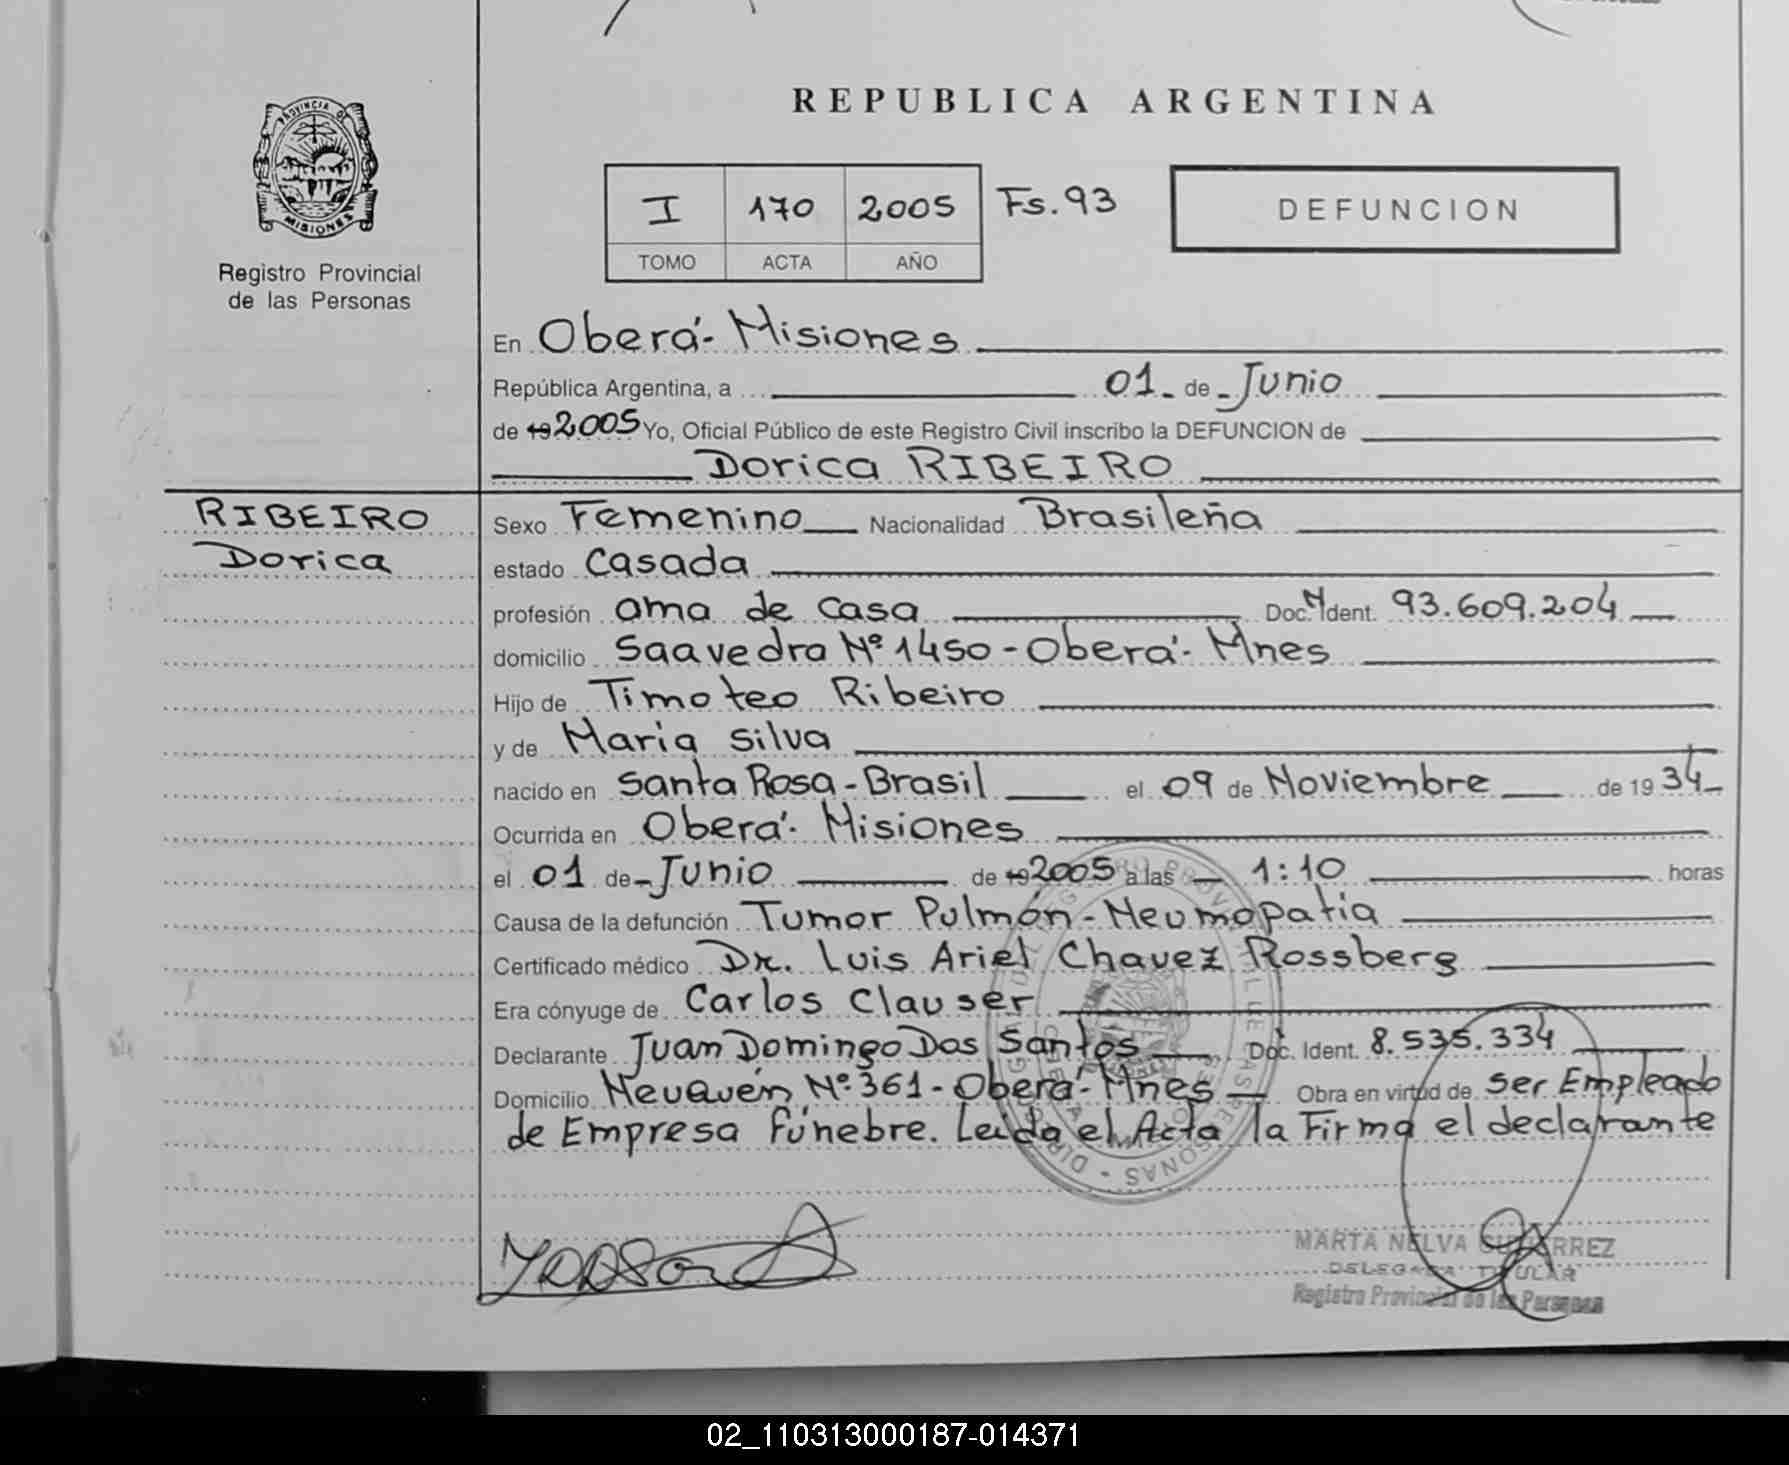 REPUBLICA ARGENTINA
PROVINCIA DE
MISIONES
Registro Provincial
de las Personas
I 170 2005 Fs. 93
TOMO ACTA AÑO
DEFUNCION
En Oberá - Misiones
República Argentina, a 01 de Junio
de 19 2005 Yo, Oficial Público de este Registro Civil inscribo la DEFUNCION de
Dorica RIBEIRO
RIBEIRO
Dorica
Sexo Femenino Nacionalidad Brasileña
estado Casada
profesión ama de casa Doc. N Ident. 93.609.204
domicilio Saavedra Nº 1450 - Oberá - Mnes
Hijo de Timoteo Ribeiro
y de Maria Silva
nacido en Santa Rosa - Brasil el 09 de Noviembre de 1934
Ocurrida en Oberá - Misiones
el 01 de Junio de 19 2005 a las 1:10 horas
Causa de la defunción Tumor Pulmón - Neumopatia
Certificado médico Dr. Luis Ariel Chavez Rossberg
Era cónyuge de Carlos Clauser
Declarante Juan Domingo Dos Santos Doc. Ident. 8.535.334
Domicilio Neuquén Nº 361 - Oberá - Mnes Obra en virtud de ser Empleado
de Empresa Fúnebre. Leida el Acta la Firma el declarante
MARTA NELVA GUTIERREZ
DELEGADA TITULAR
Registro Provincial de las Personas
02_110313000187-014371